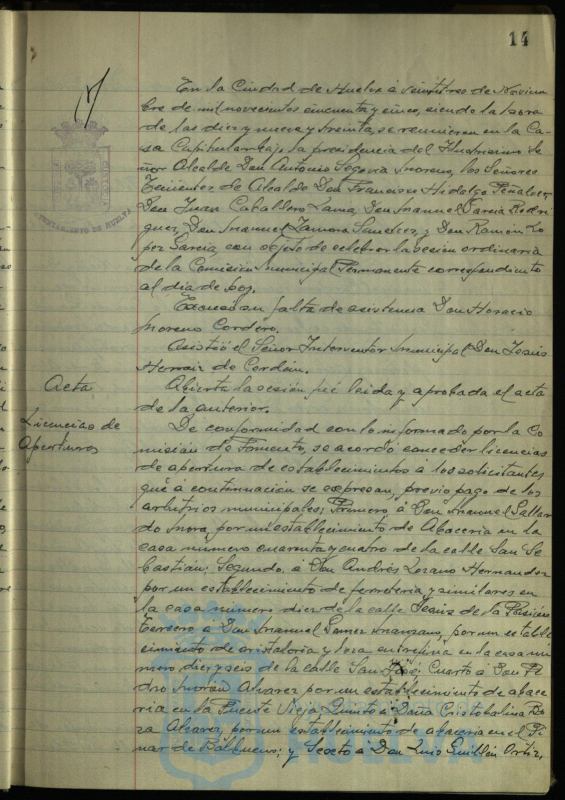 14
En la Ciudad de Huelva á veintitres de Noviem
bre de mil novecientos cincuenta y cinco, siendo la hora
de las diez y nueve y treinta, se reunieron en la Ca
sa Capitular bajo la presidencia del Ilustrísimo Se
ñor Alcalde Don Antonio Segovia Moreno, los Señores
Tenientes de Alcalde Don Francisco Hidalgo Peñalver,
Don Juan Caballero Lama, Don Manuel García Rodri
guez, Don Manuel Zamora Sanchez, y Don Ramón Lo
pez García, con objeto de celebrar la sesión ordinaria
de la Comisión Municipal Permanente correspondiente
al dia de hoy.
Excusó su falta de asistencia Don Horacio
Moreno Cordero.
Asistió el Señor Interventor Municipal Don Jesús
Herraiz de
AYUNTAMIENTO DE HUELVA
Acta
Abierta la sesión fué leida y aprobada el acta
de la anterior.
Licencias de
Aperturas
De conformidad con lo informado por la Co
misión de Fomento, se acordó conceder licencias
de apertura de establecimientos á los solicitantes
que á continuación se expresan, previo pago de los
arbitrios municipales; Primero á Don Manuel Gallar
do Mora, por un establecimiento de Abaceria en la
casa número cuarenta y cuatro de la calle San Se
bastian; Segundo, á Don Andrés Lozano Hernandez
por un establecimiento de ferreteria y similares en
la casa número diez de la calle Jesús de la Pasión
Tercero á Don Manuel Gomez Manzano, por un estable
cimiento de cristaleria y loza entrefina en la casa nú
mero diez y seis de la calle San José; Cuarto á Don Pe
dro Morán Alvarez por un establecimiento de abace
ria en la Fuente Vieja Quinto á Doña Cristobalina Bo
za Alvarez, por un establecimiento de abaceria en el Pi
nar de Balbueno; y Sexto á Don Luis Guillén Ortiz,